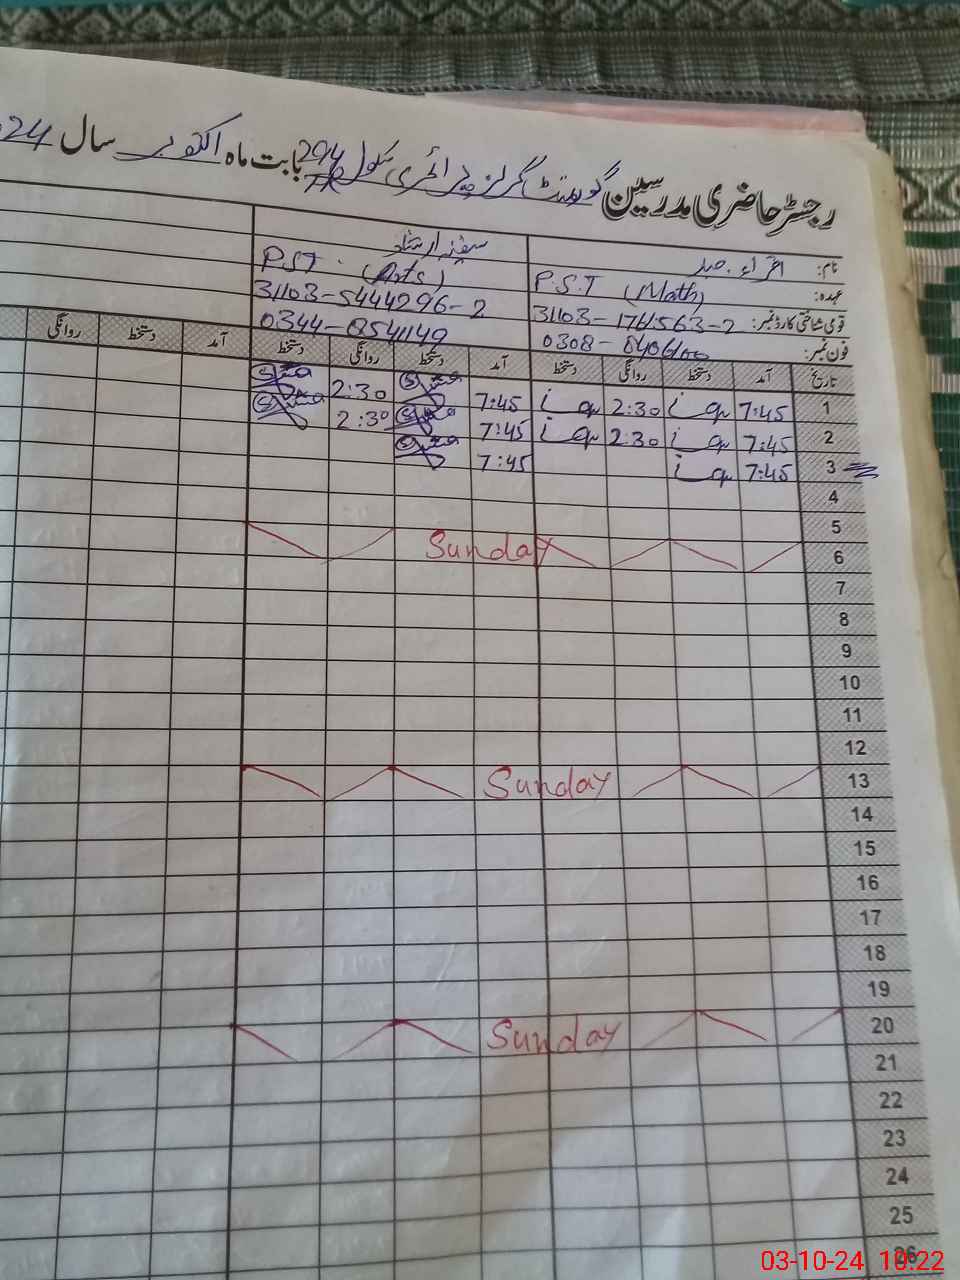 رجسٹر حاضری مدرسین گورنمنٹ گرلز پرائمری سکول 294 بابت ماہ اکتوبر سال 24
نام: اقراء سفینہ ارشاد
عہدہ: P.S.T (Math) P.S.T. (Arts)
قومی شناختی کارڈ نمبر: 31103-5444296-2
فون نمبر: 0308-
تاریخ آمد دستخط روانگی دستخط آمد دستخط روانگی دستخط آمد دستخط روانگی
1 7:45 2:30 7:45 2:30
2 7:45 2:30 7:45 2:30
3 7:45 7:45
4
5
6 Sunday
7
8
9
10
11
12
13 Sunday
14
15
16
17
18
19
20 Sunday
21
22
23
24
25
26
03-10-24 10:22